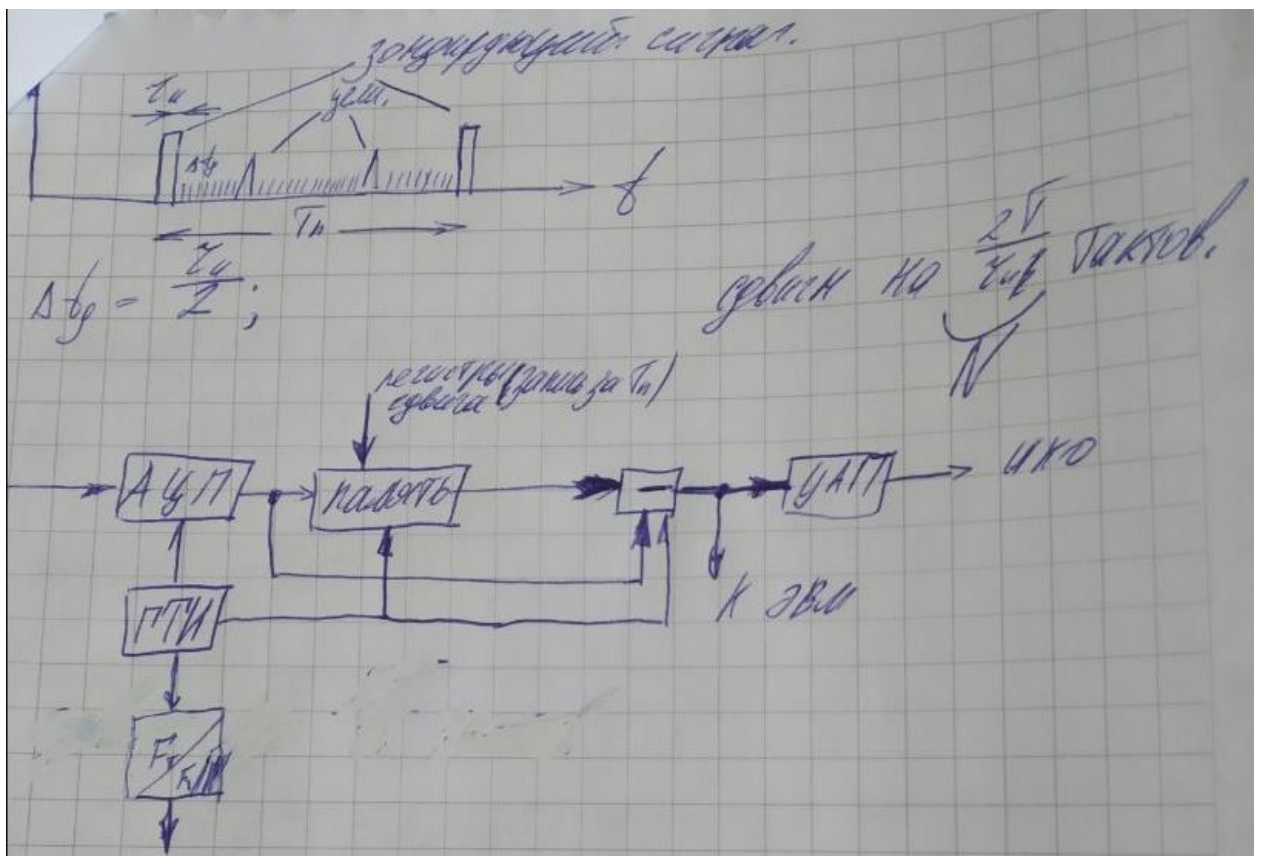 зондирующий сигнал.
τи
цели.
Δtд
t
Tп
Δtд = τи/2;
сдвиги на 2T/τи тактов.
N
регистры (запись за Tп)
сдвига
АЦП
память
−
ЦАП
ИКО
К ЭВМ
ГТИ